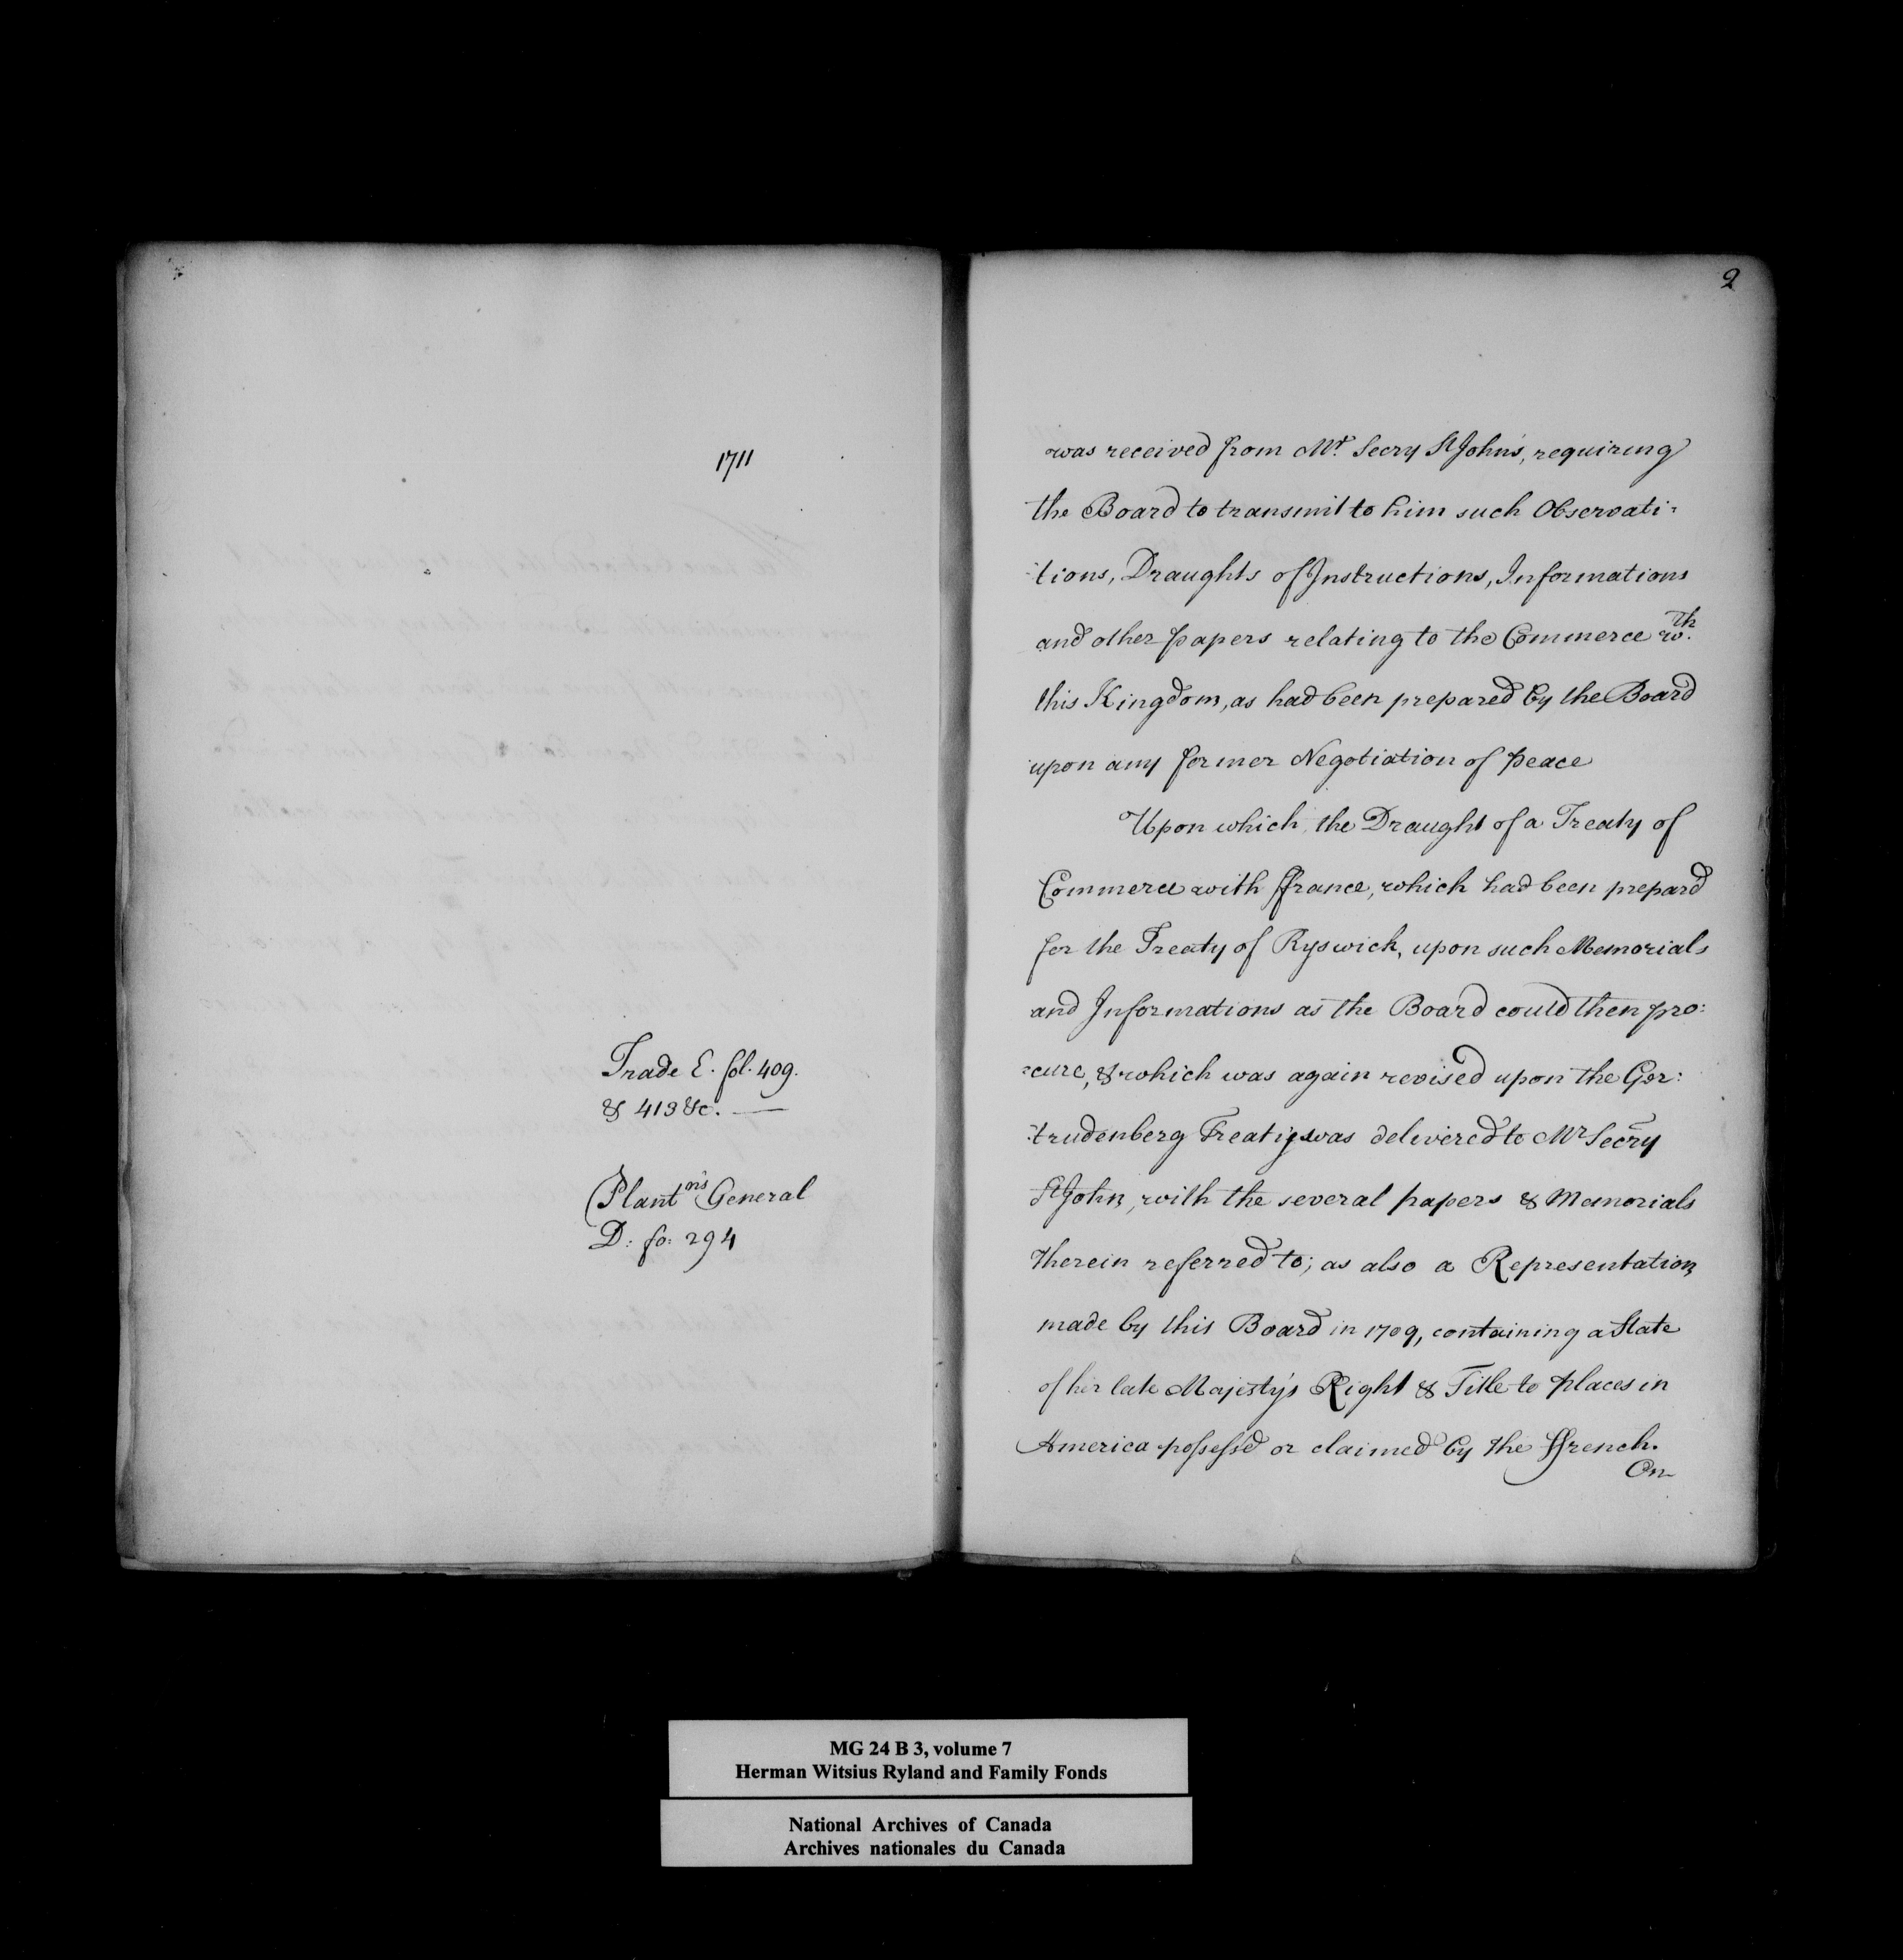 1711
Trade E. fol. 409.
& 413 &c. —
Plant.ns General
D: fo: 294
2
was received from Mr. Secry St Johns, requiring
the Board to transmit to him such Observati:
:tions, Draughts of Instructions, Informations
and other papers relating to the Commerce wth.
this Kingdom, as had been prepared by the Board
upon any former Negotiation of Peace
Upon which, the Draught of a Treaty of
Commerce with ffrance, which had been prepard
for the Treaty of Ryswick, upon such Memorials
and Informations as the Board could then pro:
:cure, & which was again revised upon the Ger:
:trudenberg Treaty was delivered to Mr Secry
St John, with the several papers & Memorials
therein referred to; as also a Representation
made by this Board in 1709, containing a State
of her late Majesty's Right & Title to places in
America possess'd or claimed by the ffrench.
On
MG 24 B 3, volume 7
Herman Witsius Ryland and Family Fonds
National Archives of Canada
Archives nationales du Canada